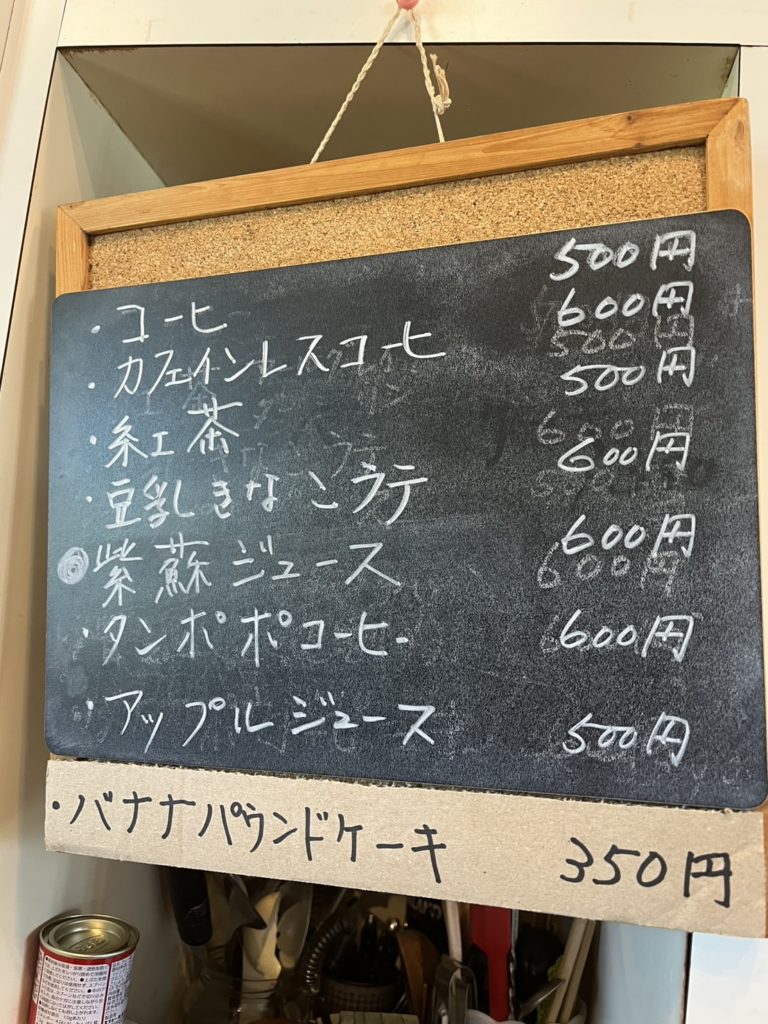 ・コーヒ 500円
・カフェインレスコーヒ 600円
・紅茶 500円
・豆乳きなこラテ 600円
◎紫蘇ジュース 600円
・タンポポコーヒー 600円
・アップルジュース 500円
・バナナパウンドケーキ 350円